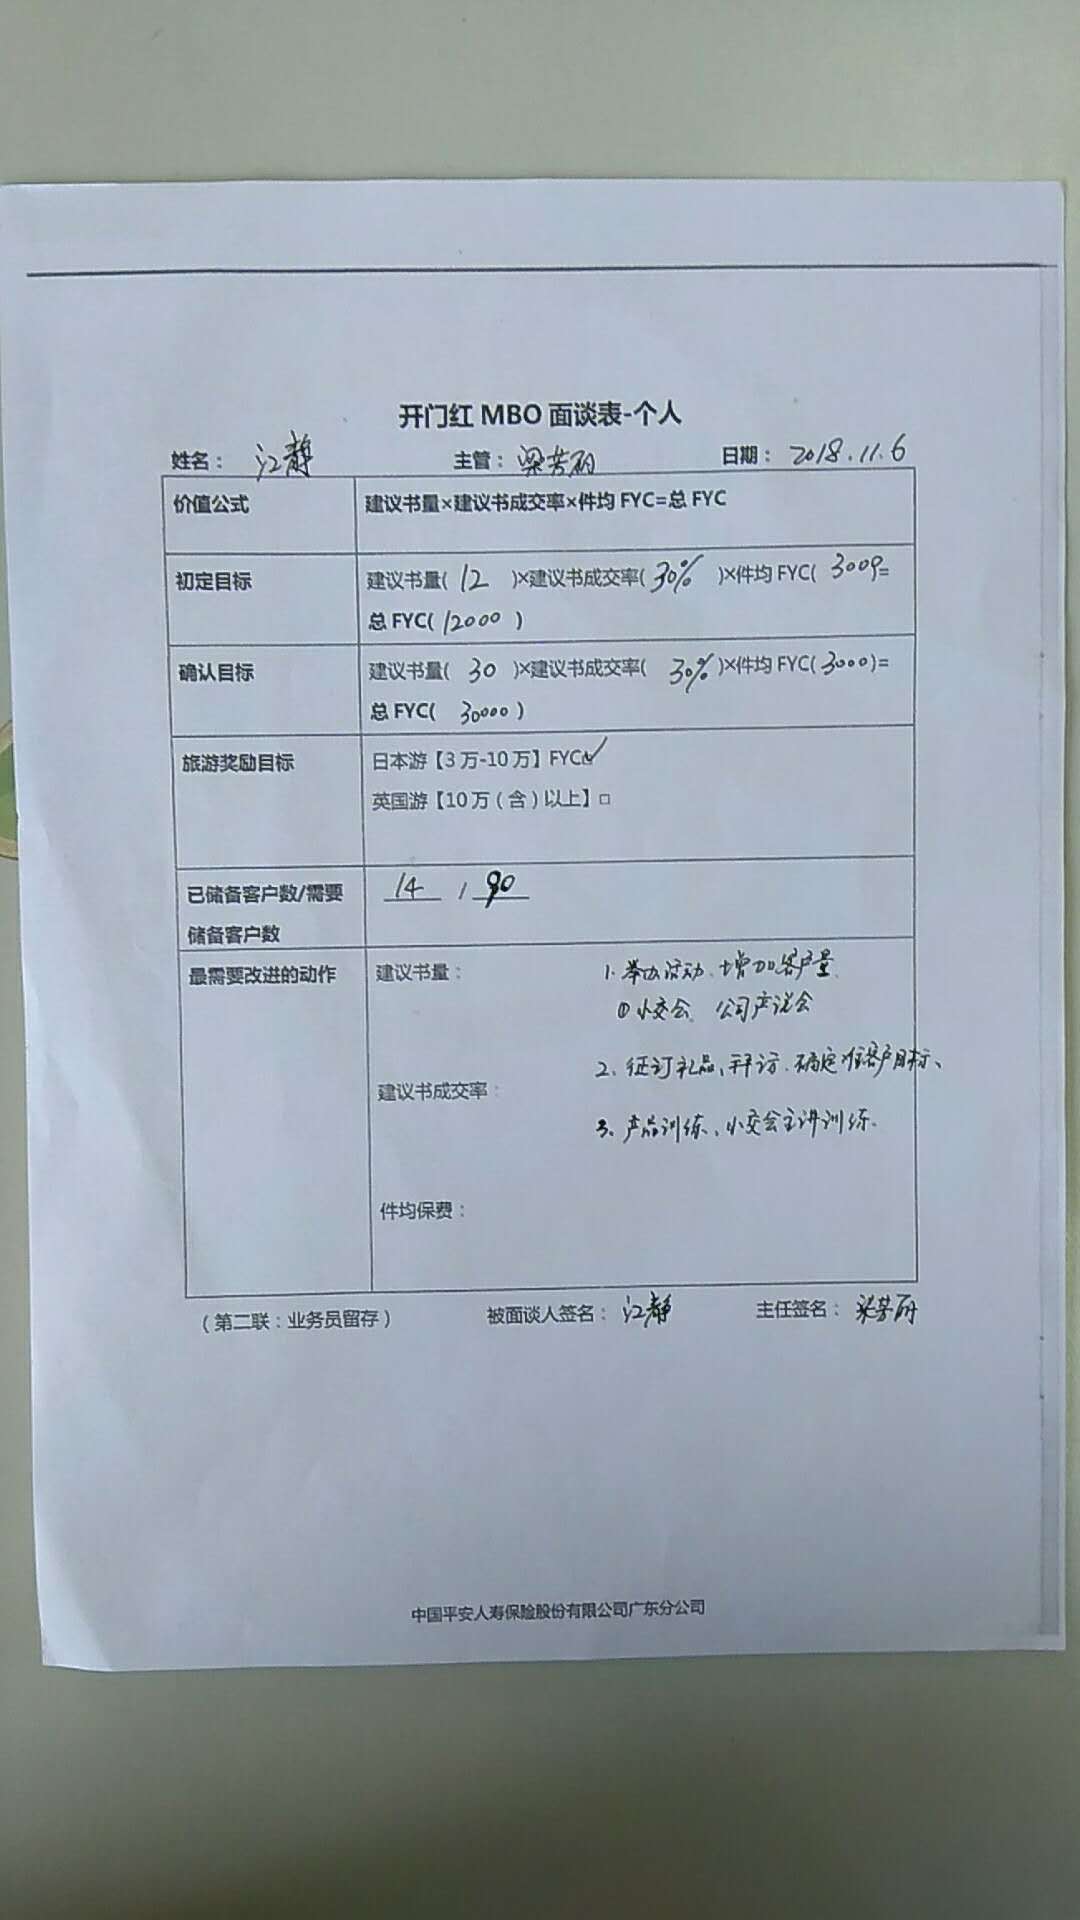 开门红 MBO 面谈表-个人
姓名： 江静 主管： 梁芳丽 日期： 2018.11.6
价值公式 建议书量×建议书成交率×件均 FYC=总 FYC
初定目标 建议书量( 12 )×建议书成交率( 30% )×件均 FYC( 3000)=
总 FYC( 12000 )
确认目标 建议书量( 30 )×建议书成交率( 30% )×件均 FYC( 3000)=
总 FYC( 30000 )
旅游奖励目标 日本游【3 万-10 万】FYC☑
英国游【10 万（含）以上】□
已储备客户数/需要 14 / 90
储备客户数
最需要改进的动作 建议书量： 1. 举办活动、增加客户量.
① 小交会、公司产说会
2. 征订礼品、拜访、确定准客户目标、
建议书成交率：
3. 产品训练、小交会主讲训练.
件均保费：
（第二联：业务员留存） 被面谈人签名： 江静 主任签名： 梁芳丽
中国平安人寿保险股份有限公司广东分公司